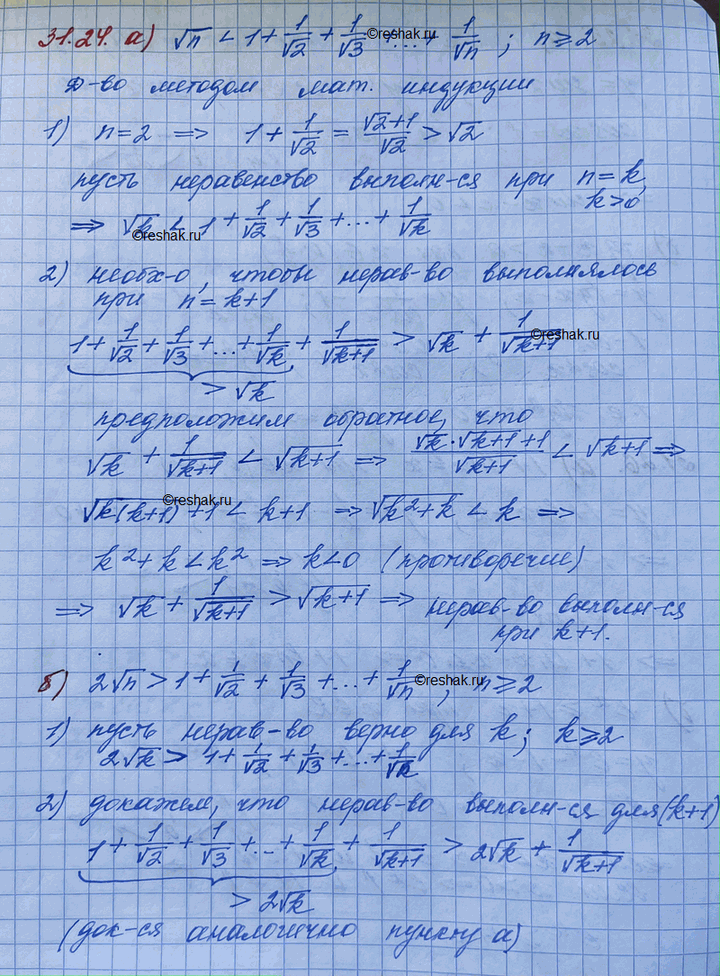 31.24. а) √n < 1 + 1/√2 + 1/√3 + ... + 1/√n ; n ≥ 2
©reshak.ru
Д-во методом мат. индукции
1) n = 2 ⇒ 1 + 1/√2 = (√2+1)/√2 > √2
пусть неравенство выполн-ся при n = k,
k > 0
⇒ √k < 1 + 1/√2 + 1/√3 + ... + 1/√k
©reshak.ru
2) необх-о, чтобы нерав-во выполнялось
при n = k+1
1 + 1/√2 + 1/√3 + ... + 1/√k + 1/√(k+1) > √k + 1/√(k+1)
©reshak.ru
> √k
предположим обратное, что
√k + 1/√(k+1) < √(k+1) ⇒ (√k · √(k+1) + 1)/√(k+1) < √(k+1) ⇒
©reshak.ru
√(k(k+1)) + 1 < k+1 ⇒ √(k²+k) < k ⇒
k² + k < k² ⇒ k < 0 (противоречие)
⇒ √k + 1/√(k+1) > √(k+1) ⇒ нерав-во выполн-ся
при k+1.
б) 2√n > 1 + 1/√2 + 1/√3 + ... + 1/√n ; n ≥ 2
©reshak.ru
1) пусть нерав-во верно для k; k ≥ 2
2√k > 1 + 1/√2 + 1/√3 + ... + 1/√k
2) докажем, что нерав-во выполн-ся для (k+1)
1 + 1/√2 + 1/√3 + ... + 1/√k + 1/√(k+1) > 2√k + 1/√(k+1)
> 2√k
(док-ся аналогично пункту а)